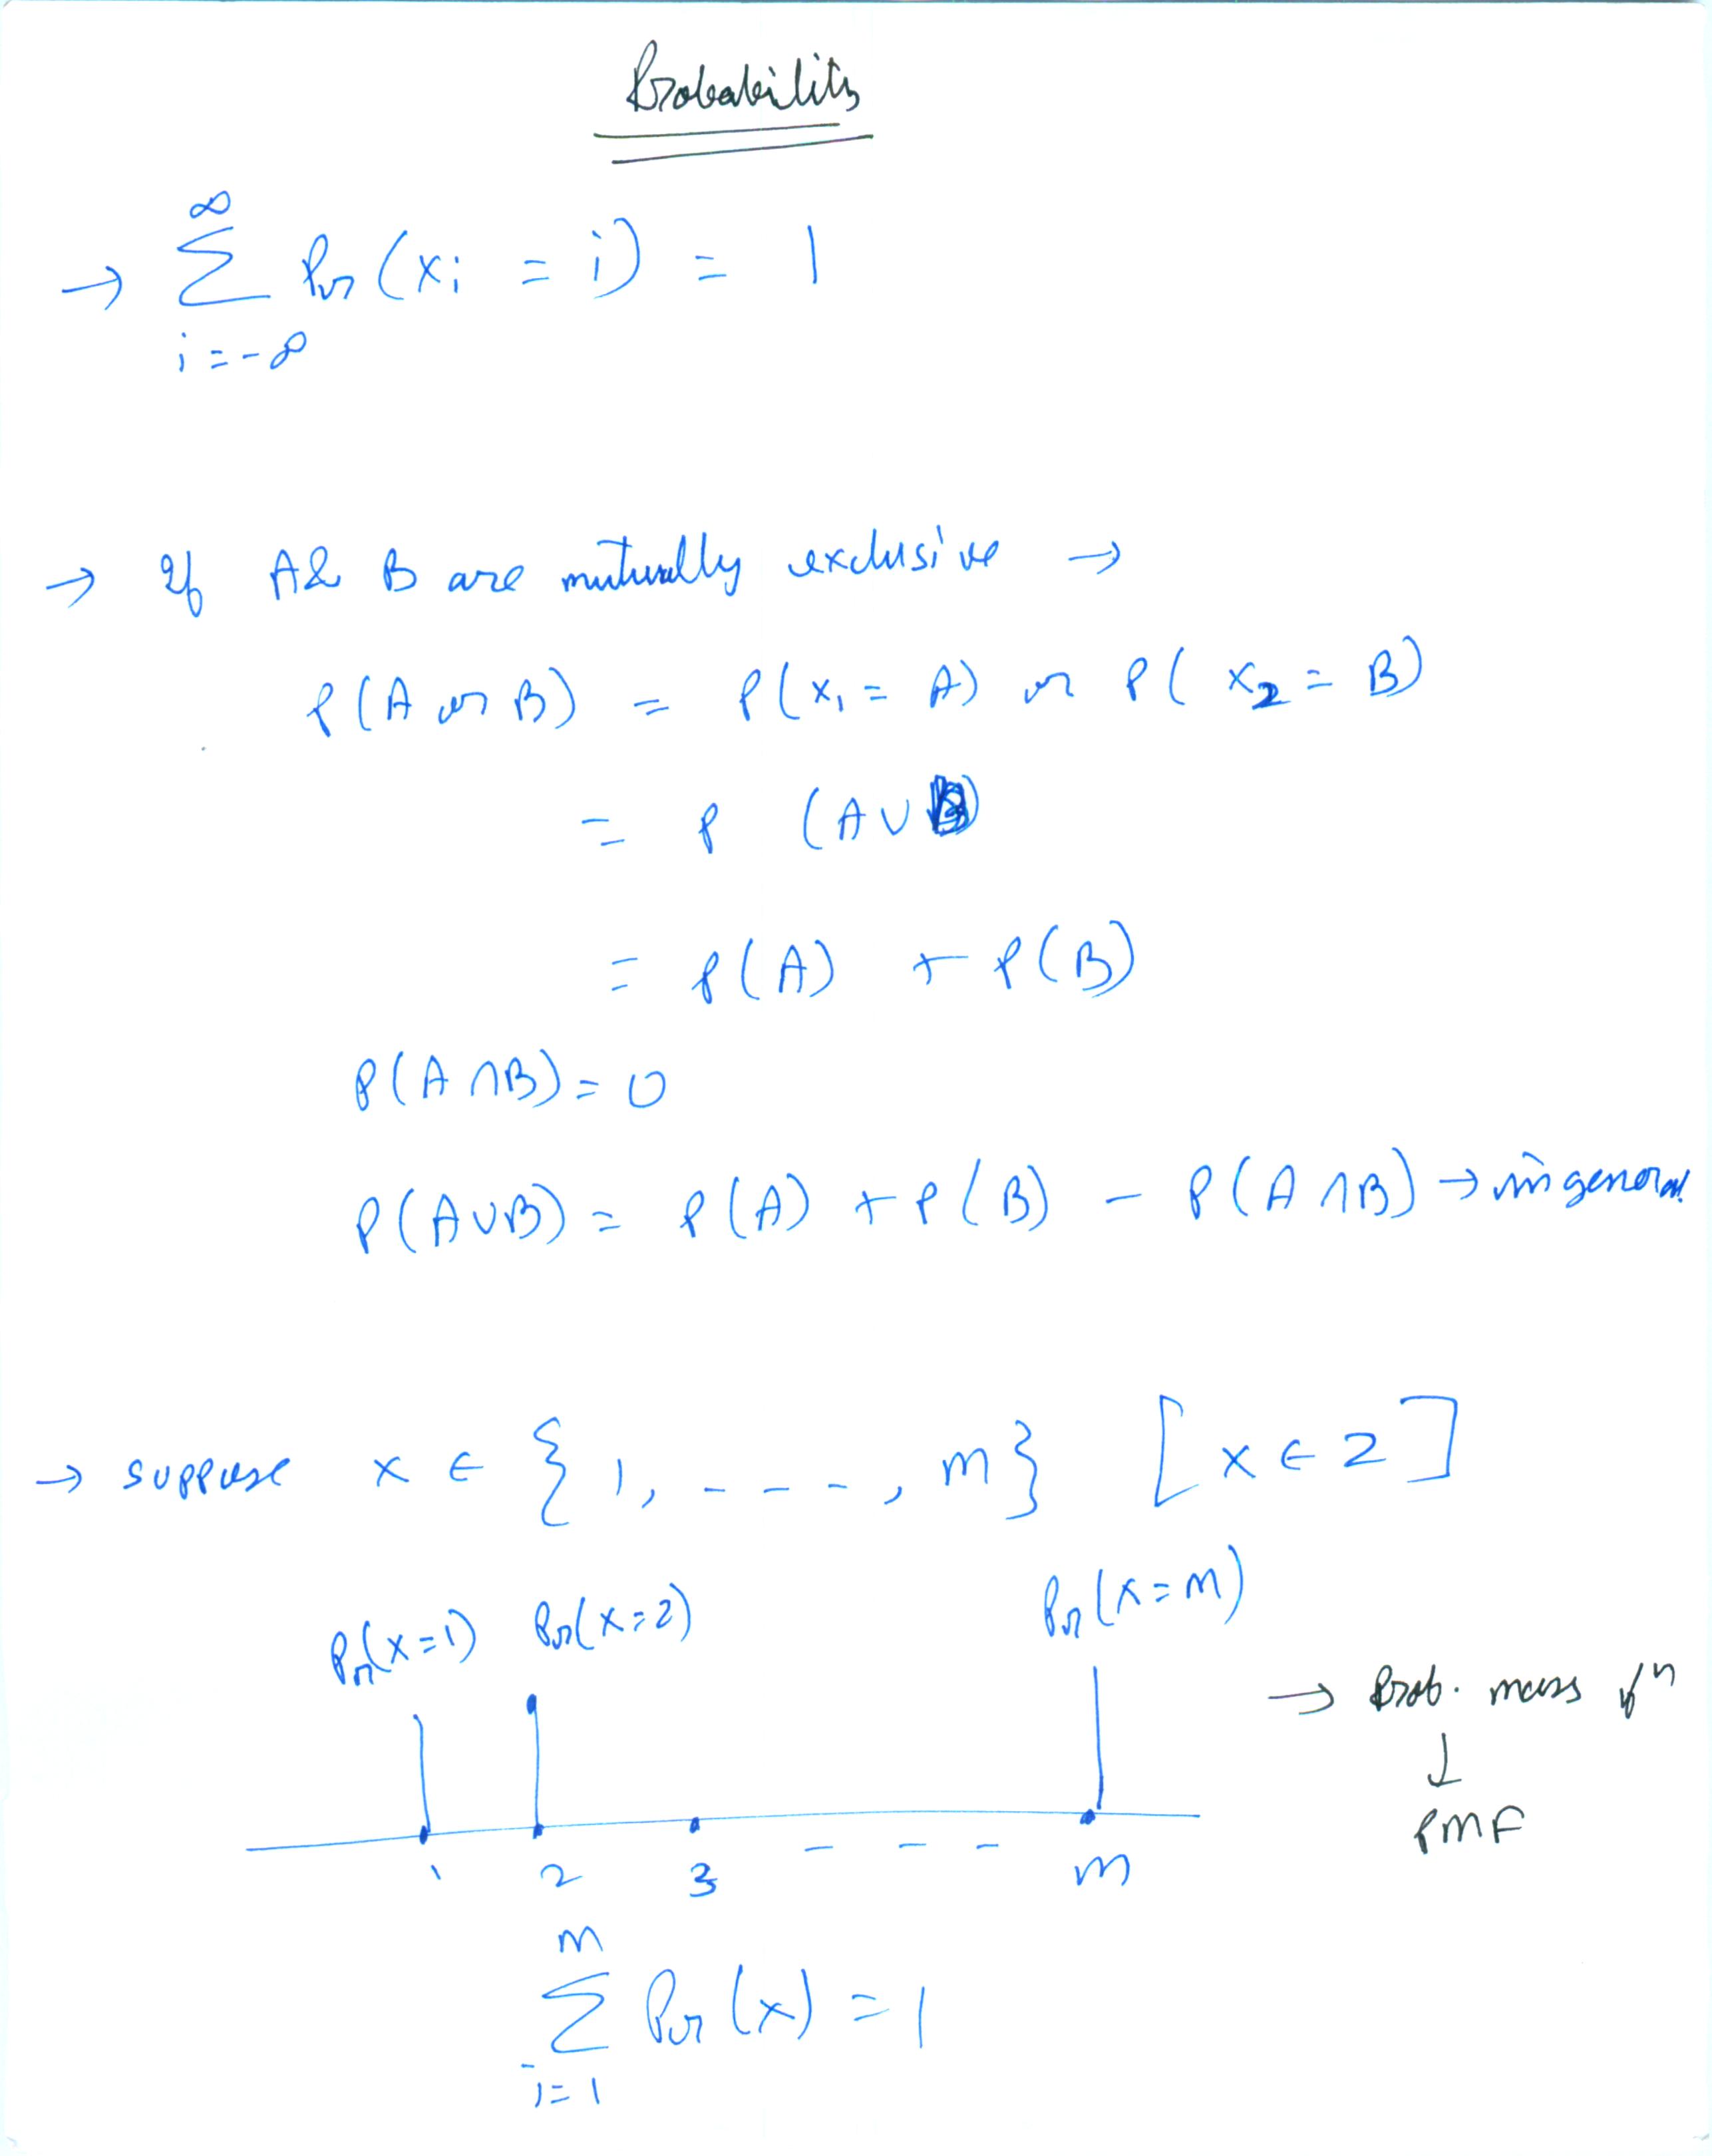 Probability
∞
→ Σ Pr(xi = i) = 1
i=-∞
→ If A & B are mutually exclusive →
P(A or B) = P(x₁ = A) or P(x₂ = B)
= P (A∪B)
= P(A) + P(B)
P(A∩B) = 0
P(A∪B) = P(A) + P(B) - P(A∩B) → in general
→ suppose x ∈ {1, - - - -, m} [x ∈ Z]
Pr(x=1) Pr(x=2) Pr(x=m)
→ Prob. mass fⁿ
↓
PMF
1 2 3 - - - m
m
Σ Pr(x) = 1
i=1